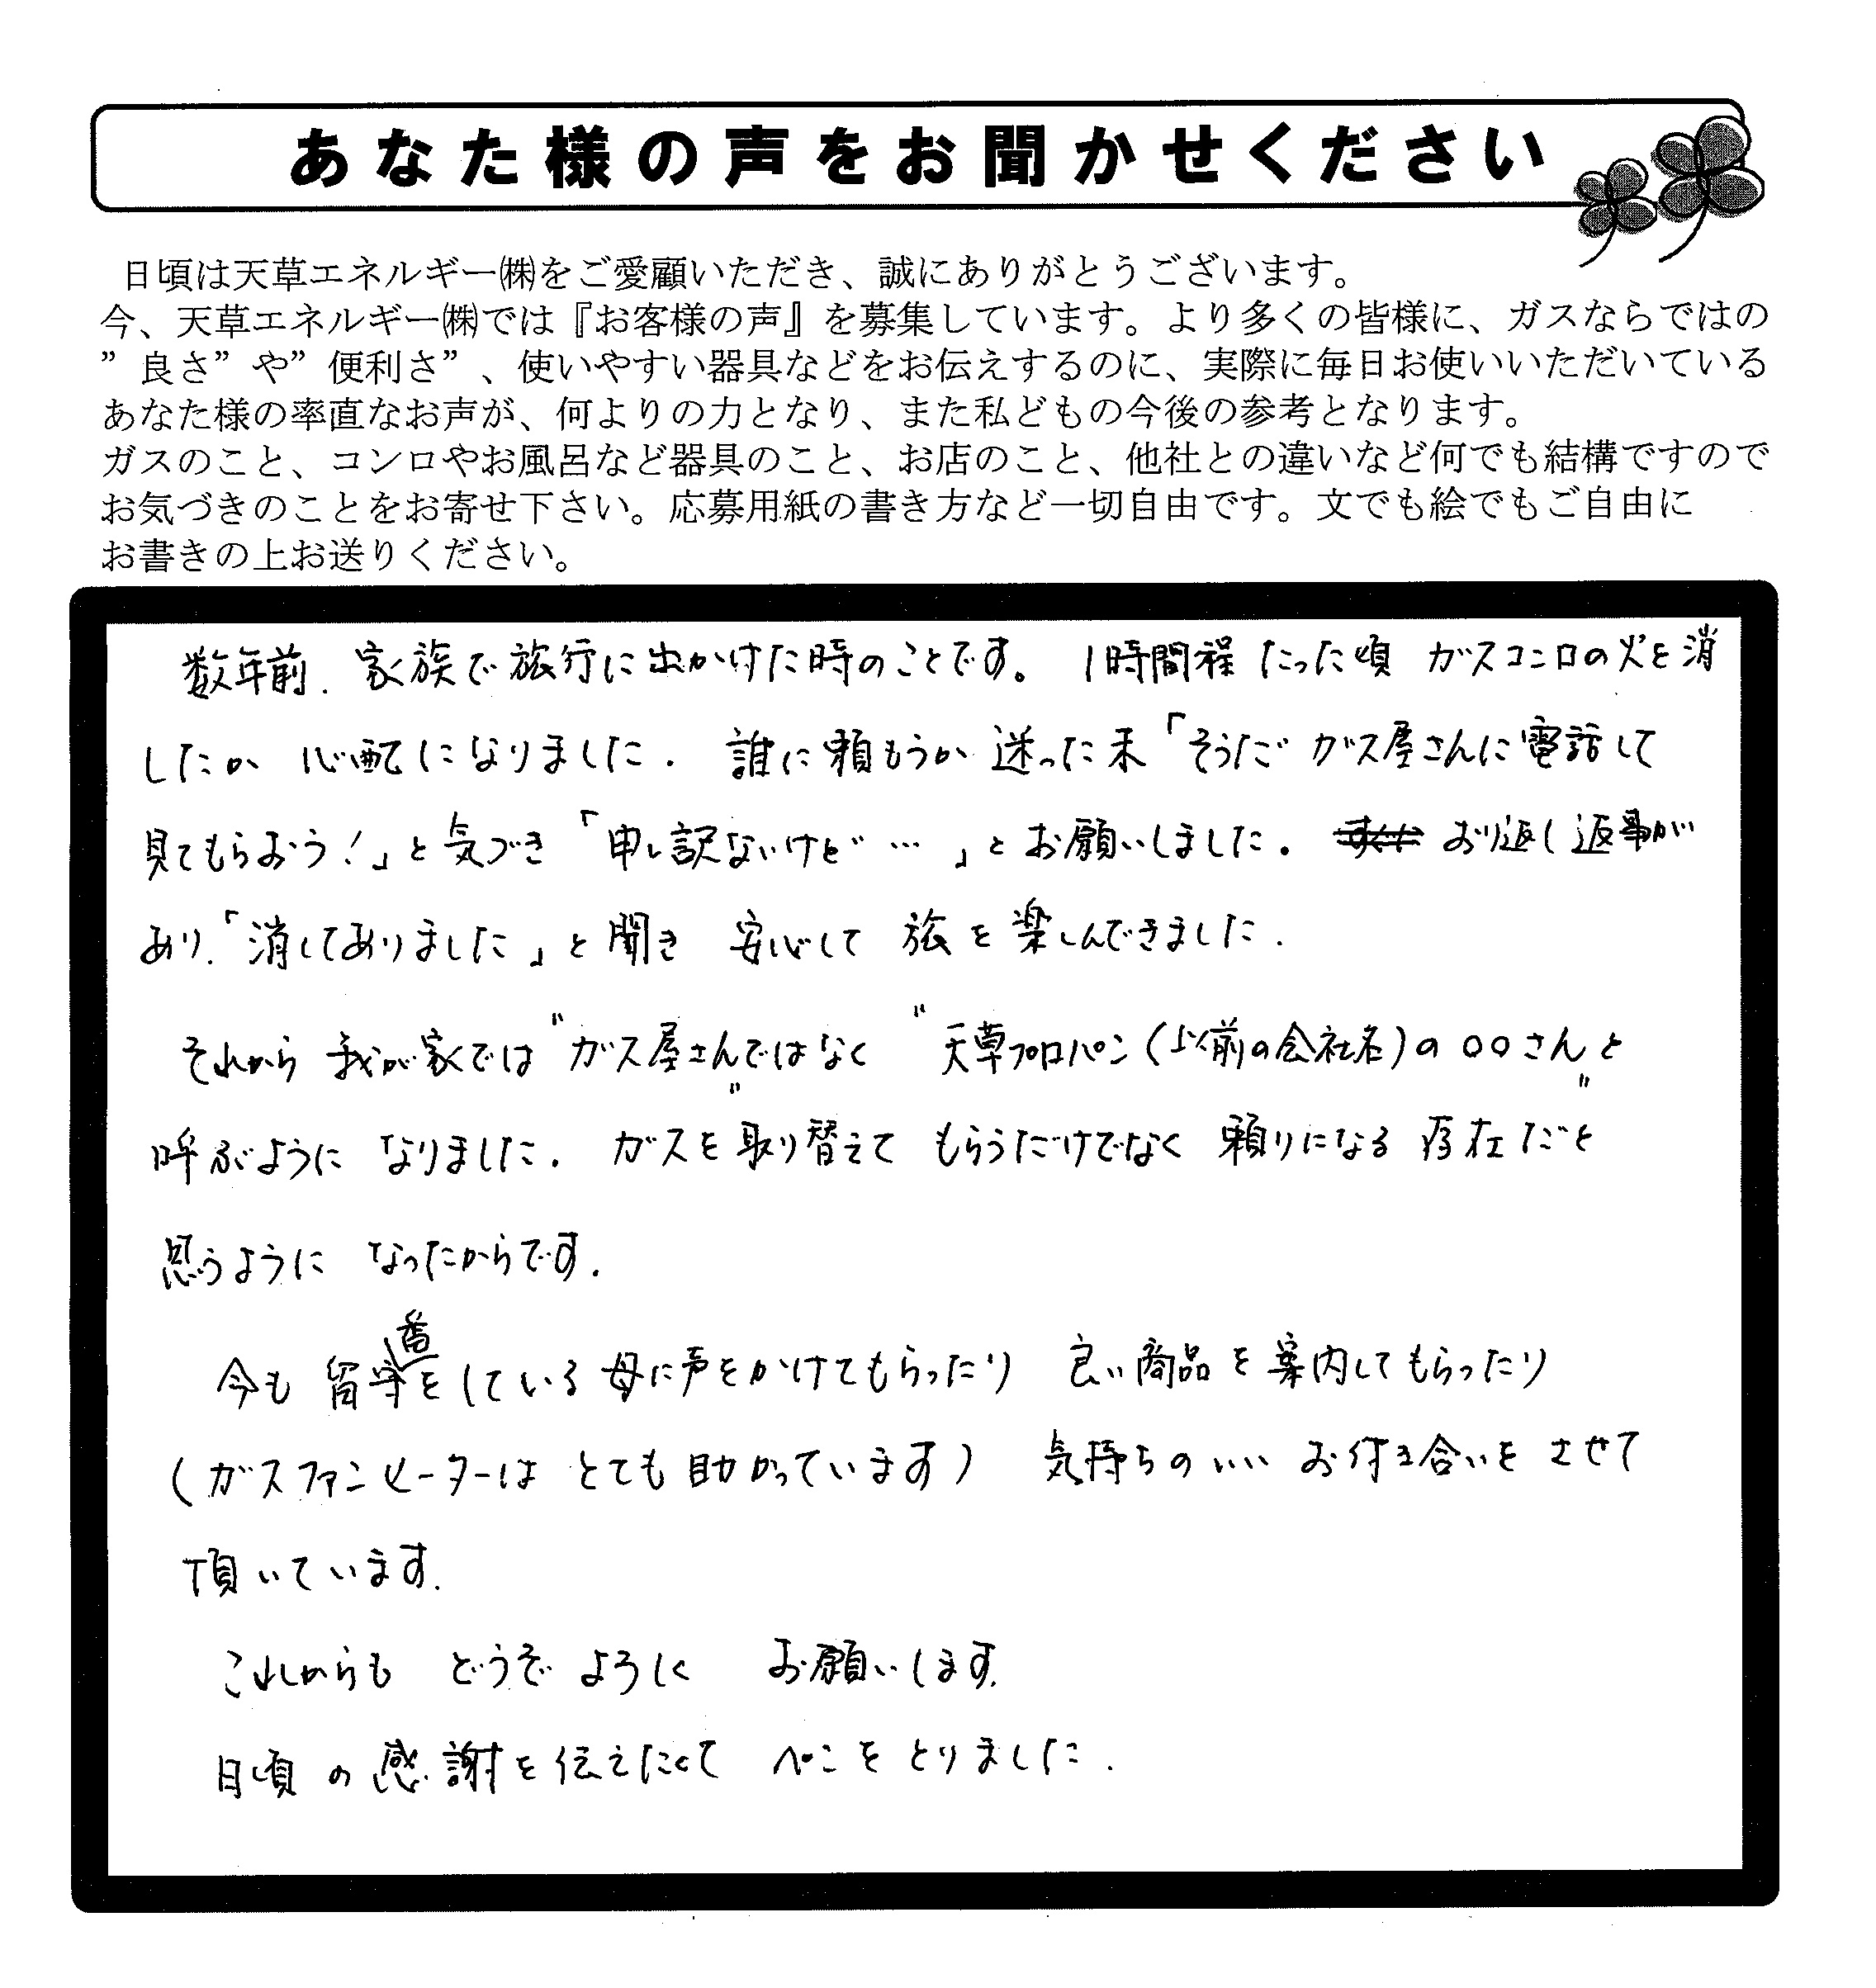 あなた様の声をお聞かせください
日頃は天草エネルギー㈱をご愛顧いただき、誠にありがとうございます。
今、天草エネルギー㈱では『お客様の声』を募集しています。より多くの皆様に、ガスならではの
”良さ”や”便利さ”、使いやすい器具などをお伝えするのに、実際に毎日お使いいただいている
あなた様の率直なお声が、何よりの力となり、また私どもの今後の参考となります。
ガスのこと、コンロやお風呂など器具のこと、お店のこと、他社との違いなど何でも結構ですので
お気づきのことをお寄せ下さい。応募用紙の書き方など一切自由です。文でも絵でもご自由に
お書きの上お送りください。
数年前、家族で旅行に出かけた時のことです。1時間程たった頃 ガスコンロの火を消
したか 心配になりました。誰に頼もうか 迷った末「そうだ ガス屋さんに電話して
見てもらおう!」と気づき「申し訳ないけど…」とお願いしました。おり返し返事が
あり、「消してありました」と聞き 安心して 旅を楽しんできました。
それから 我が家では〝ガス屋さん〟ではなく 〝天草プロパン(以前の会社名)の○○さん〟と
呼ぶように なりました。ガスを取り替えて もらうだけでなく 頼りになる 存在だと
思うように なったからです。
今も 留守番をしている母に声をかけてもらったり 良い商品を案内してもらったり
(ガスファンヒーターは とても助かっています) 気持ちのいい お付き合いを させて
頂いています。
これからも どうぞ よろしく お願いします。
日頃の感謝を伝えたくて ペンをとりました。